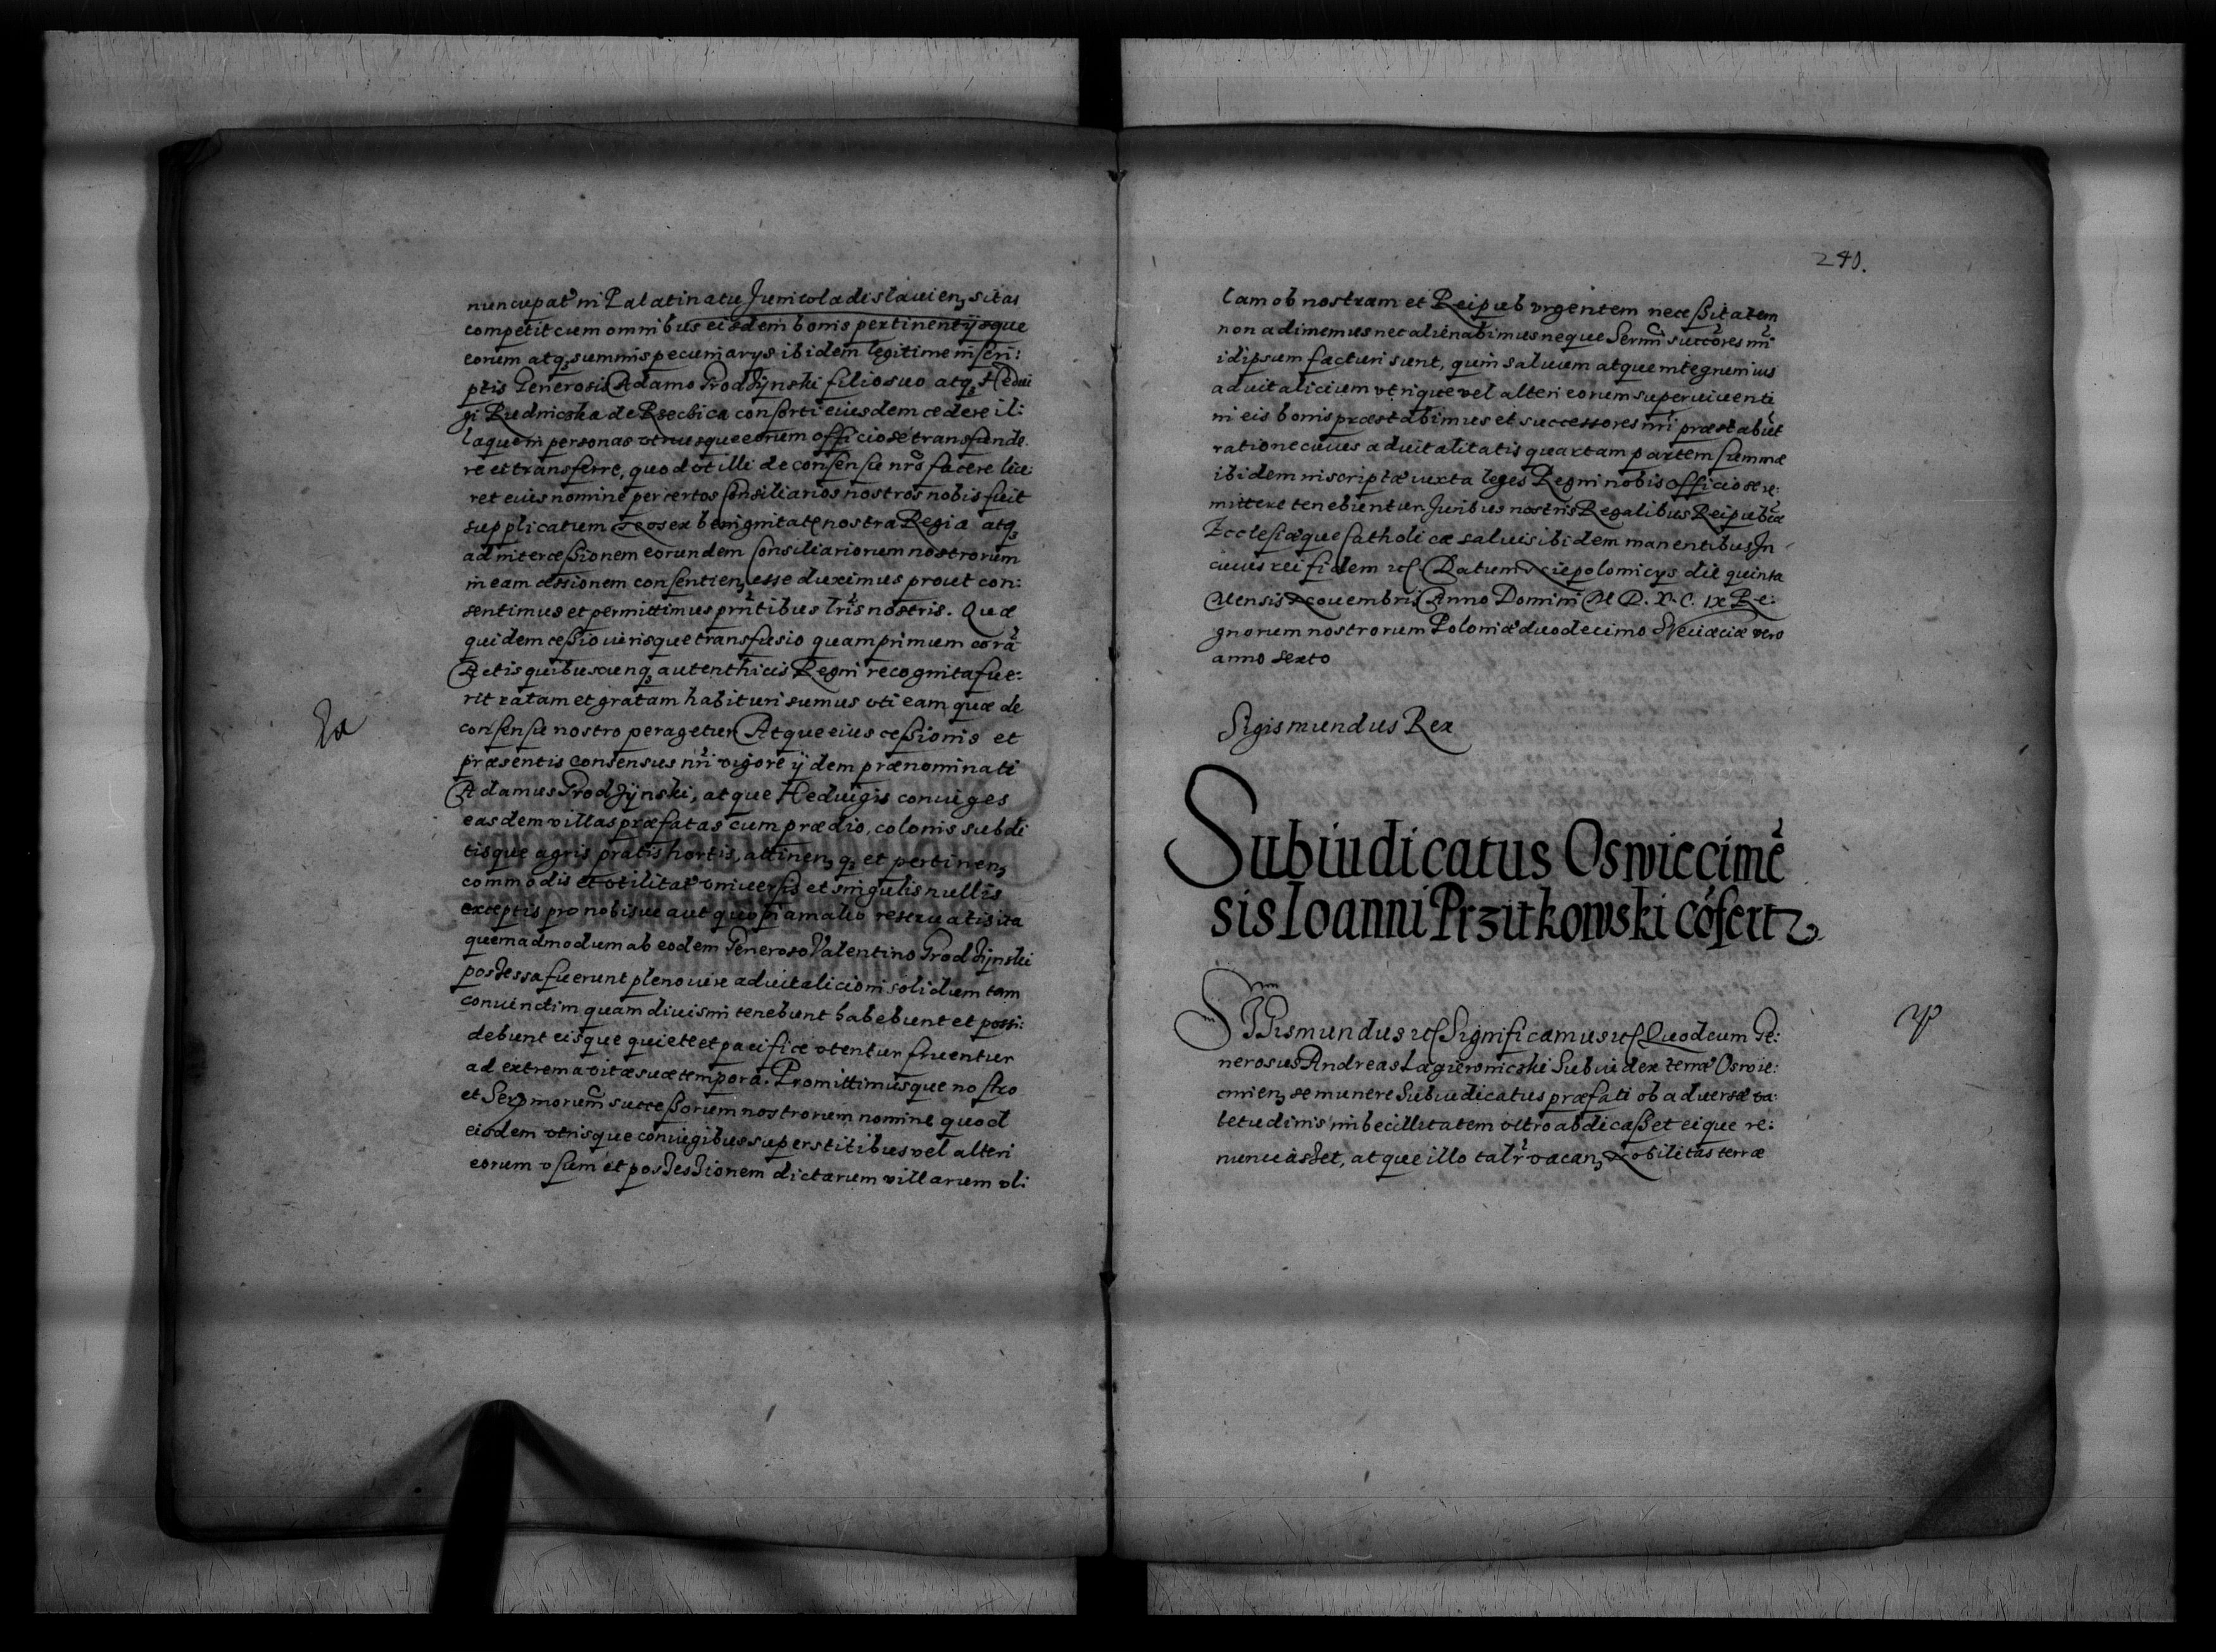 nuncupat in Palatinatu Juniwladislauien, sitas
competit cum omnibus eisdem bonis pertinentijsque
eorum atq, summis pecuniarys ibidem legitime inscri:
ptis Generosis Adamo Grodzÿnski filio suo atq, Hedui
gi Rudnicska de Rzecbica consorti eiusdem cedere il:
laque in personas utriusque eorum officiose transfunde
re et transferre, quod ut illi de consensu nro facere lice:
ret eius nomine per certos Consiliarios nostros nobis fuit
supplicatum Nos ex benignitate nostra Regia atq,
ad intercessionem eorundem Consiliariorum nostrorum
in eam cessionem consentien, esse duximus prout con:
sentimus et permittimus prntibus lris nostris. Quæ
quidem cessio iurisque transfusio quamprimum corã
Actis quibuscunq, autenthicis Regni recognita fue:
rit ratam et gratam habituri sumus uti eam quæ de
consensu nostro peragetur Atque eius cessionis et
præsentis consensus nri vigore ijdem prænominati
Adamus Grodzÿnski, atque Heduigis coniuges
easdem villas præfatas cum prædio, colonis subdi
tisque agris pratis hortis, attinen, q, et pertinen,
commodis et utilitat universis et singulis nullis
exceptis pro nobisue aut quopiam alio reseruatis ita
quemadmodum ab eodem Generoso Valentino Grodzÿnski
possessa fuerunt pleno iure aduitalicio in solidum tam
coniunctim quam diuisim tenebunt habebunt et possi:
debunt eisque quiete et pacifice utentur fruentur
ad extrema vitæ suæ tempora. Promittimusque nostro
et Sermorum successorum nostrorum nomine quod
eisdem utrisque coniugibus superstitibus vel alteri
eorum usum et possessionem dictarum villarum uli
240.
lam ob nostram et Reipub urgentem necessitatem
non adimemus nec alienabimus neque Sermi succores nri
id ipsum facturi sunt, quin saluum atque integrum ius
aduitalicium utrique vel alteri eorum superuiuenti
in eis bonis præstabimus et successores nri præstabut
ratione cuius aduitalitatis quartam partem summæ
ibidem inscriptæ iuxta leges Regni nobis officiose re:
mittere tenebuntur Juribus nostris Regalibus Reipubcæ
Ecclesiæque Catholicæ saluis ibidem manentibus In
cuius rei fidem etc. Datum Niepolomicys die quinta
Mensis Nouembris Anno Domini M D. X. C. IX Re:
gnorum nostrorum Poloniæ duodecimo Sveciæ vero
anno sexto
Sigismundus Rex
Subiudicatus Oswiecimẽ
sis Ioanni Przitkowski cõfert
SIGismundus etc Significamus etc Quod cum Ge:
nerosus Andreas Lagiewnicski Subiudex terræ Oswie:
cimien, se munere Subiudicatus præfati ob aduersæ va:
letudinis imbecillitatem ultro abdicasset eique re:
nunciasset, atque illo talr vacan, Nobilitas terræ